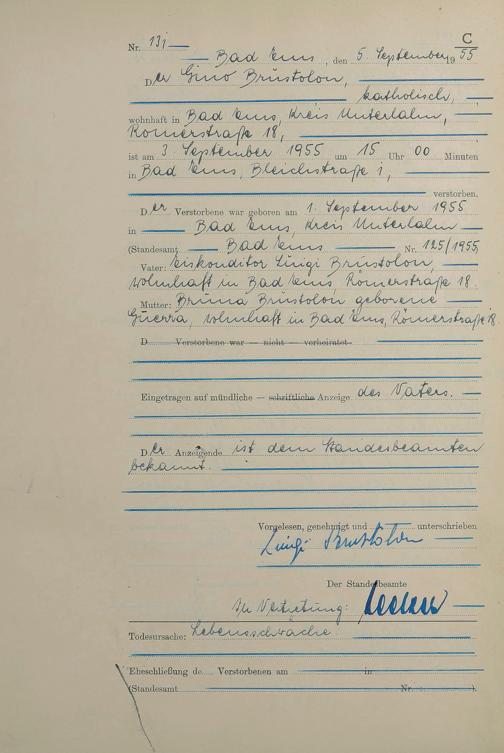 C
Nr. 131
Bad Ems, den 5. September 1955
Der Gino Brustolon,
katholisch,
wohnhaft in Bad Ems, Kreis Unterlahn,
Römerstraße 18,
ist am 3. September 1955 um 15 Uhr 00 Minuten
in Bad Ems, Bleichstraße 1,
verstorben.
Der Verstorbene war geboren am 1. September 1955
in Bad Ems, Kreis Unterlahn
(Standesamt Bad Ems Nr. 125/1955
Vater: Eiskonditor Luigi Brustolon,
wohnhaft in Bad Ems, Römerstraße 18.
Mutter: Bruna Brustolon geborene
Guerra, wohnhaft in Bad Ems, Römerstraße 18.
D Verstorbene war — nicht — verheiratet
Eingetragen auf mündliche — schriftliche Anzeige des Vaters.
Der Anzeigende ist dem Standesbeamten
bekannt.
Vorgelesen, genehmigt und unterschrieben
Luigi Brustolon
Der Standesbeamte
In Vertretung:
Todesursache: Lebensschwäche
Eheschließung de Verstorbenen am in
(Standesamt Nr. ).